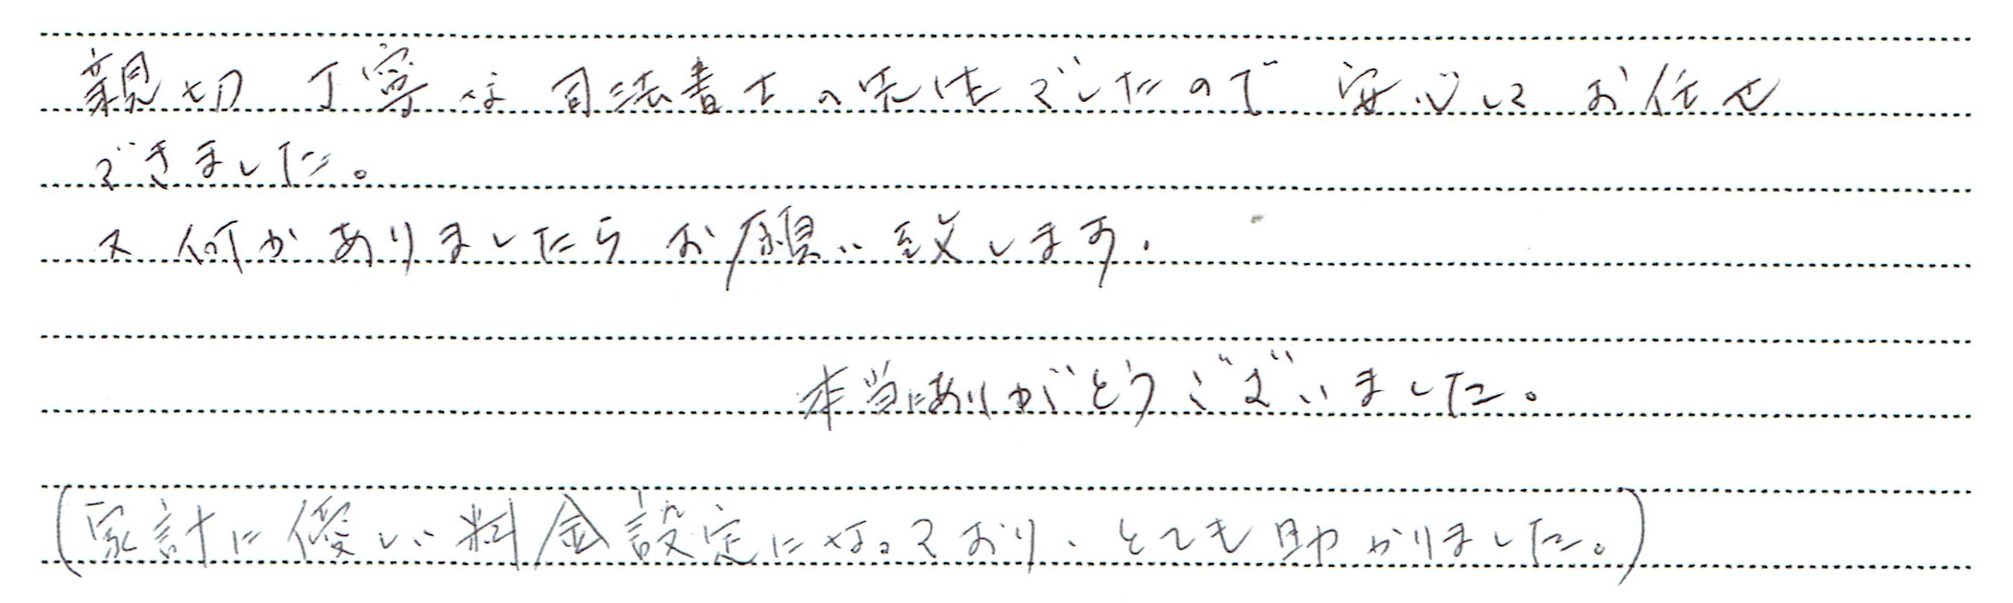 親切 丁寧な 司法書士の先生でしたので 安心して お任せ
できました。
又 何かありましたら お願い致します.
本当にありがとうございました。
(家計に優しい料金設定になっており、とても助かりました。)